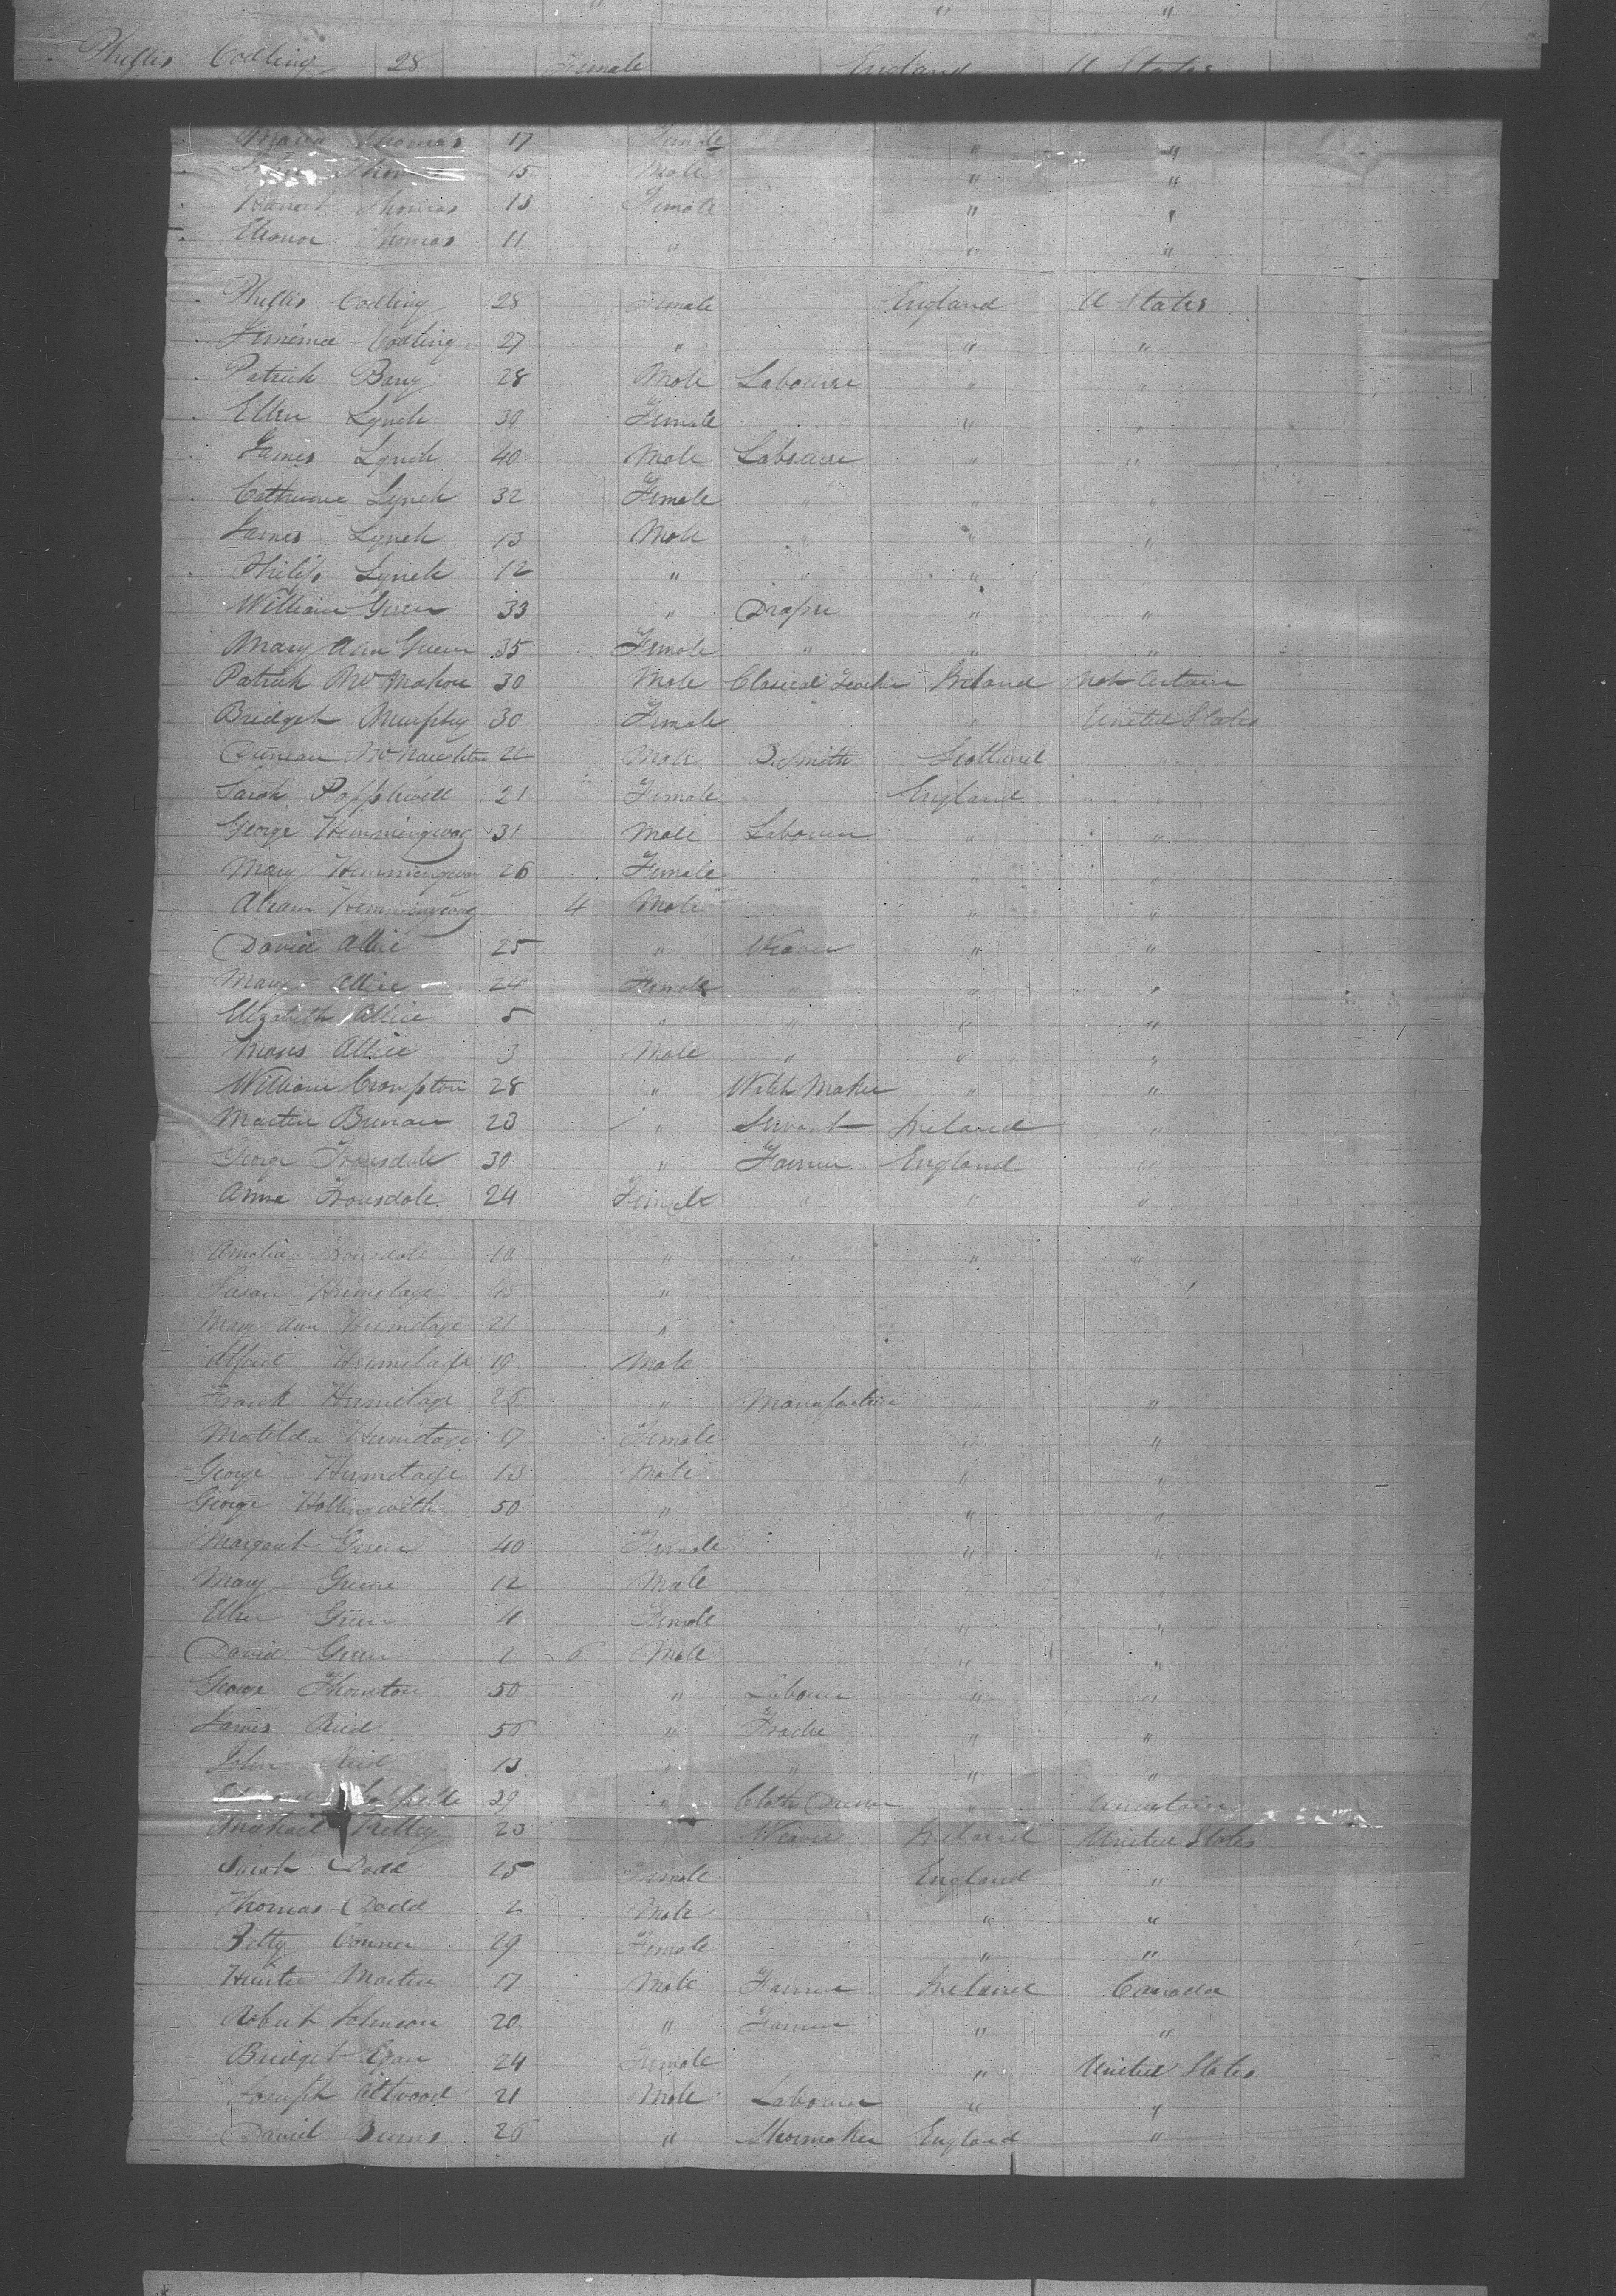 " " "
Phillis Codling 28 Female England U States
Maria Thomas 17 Female " "
Thomas 15 Male " "
Thomas 13 Female " "
Eleonor Thomas 11 " " "
Phillis Codling 28 Female England U States
Jemimea Codling 27 " " "
Patrick Barry 28 Male Labourer " "
Ellen Lynch 39 Female " "
James Lynch 40 Male Labourer " "
Catherine Lynch 32 Female " " "
James Lynch 13 Male " " "
Philip Lynch 12 " " "
William Green 33 " Draper " "
Mary Ann Green 35 Female " " "
Patrick McMahon 30 Male Clasical Teacher Ireland Not Certain
Bridget Murphy 30 Female " United States
Duncan McNaughton 22 Male B. Smith Scotland "
Sarah Popplewell 21 Female England "
George Hemmingway 31 Male Labourer " "
Mary Hemmingway 26 Female " "
Hemmingway 4 Male " "
David Allice 25 " Weaver " "
Mary Allice 24 Female " " "
Elizabeth Allice 5 " " " "
Allice 3 Male " " "
William Crompton 28 " Watch Maker " "
Martin 23 " Servant Ireland "
George Trousdale 30 " Farmer England "
Anne Trousdale 24 Female " " "
Amelia Trousdale 10 " " " "
Susan Hermitage 45 "
Mary Ann Hermitage 21 "
Alfred Hermitage 19 Male
Frank Hermitage 25 " Manufacturer " "
Matilda Hermitage 17 Female " "
George Hermitage 13 Male " "
George Hollingworth 50 " " "
Margaret Green 40 Female " "
Mary Greene 12 Male " "
Ellen Green 4 Female " "
David Green 2 6 Male " "
George Thornton 50 " Labourer " "
James Reid 50 " Trader " "
John Reid 13 " " " "
29 " Cloth Dresser " Uncertain
Michael Kelley 23 Weaver Ireland United States
Sarah Dodd 25 Female England "
Thomas Dodd 2 Male " "
Betty Conner 29 Female " "
Hunter Martin 17 Male Farmer Ireland Canada
Robert Johnson 20 " Farmer " "
Bridget Egan 24 Female " United States
Joseph Attwood 21 Male Labourer " "
David Burns 26 " Shoemaker England "